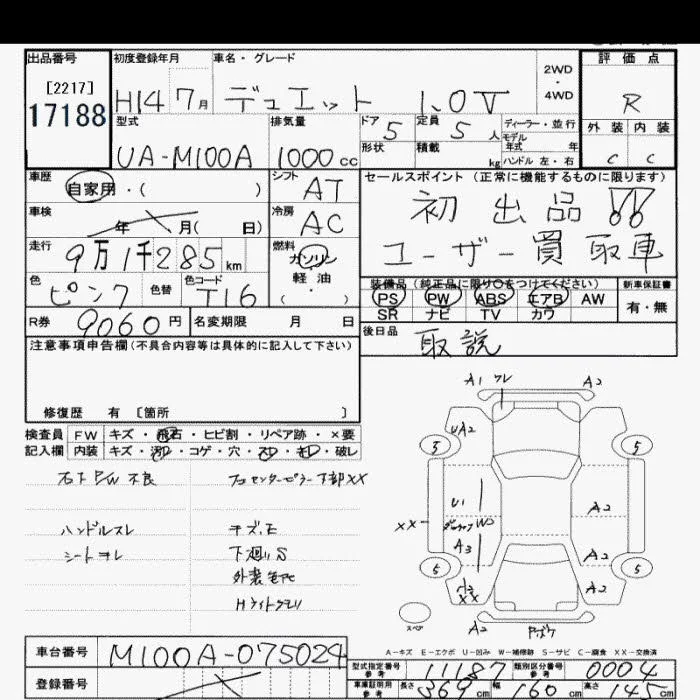 出品番号 初度登録年月 車名・グレード 2WD・4WD 評価点
[2217]
17188 H14 7月 デュエット 1.0V R
型式 排気量 ドア 5 定員 5人 ディーラー・並行 外装 内装
モデル年式 年
UA-M100A 1000cc 形状 積載 kg ハンドル 左・右 C C
車歴 自家用・( ) シフト AT セールスポイント (正常に機能するものに限ります)
車検 年 月( 日) 冷房 AC 初出品!!
走行 9万1千285km 燃料 ガソリン ユーザー買取車
軽油
・( )
色 ピンク 色替 色コード T16 装備品 (純正品に限り○をつけてください) 新車保証書
PS PW ABS エアB AW 有・無
SR ナビ TV カワ
R券 9060円 名変期限 月 日 後日品 取説
注意事項申告欄(不具合内容等は具体的に記入して下さい)
修復歴 有 〔箇所 〕
検査員 FW キズ・飛石・ヒビ割・リペア跡・×要
記入欄 内装 キズ・汚レ・コゲ・穴・スレ・モレ・破レ
P/W 不良
センターピラー下部XX
ハンドルスレ キズ.E
シートヨレ 下廻りS
Hライトクモリ
A1 A2
UA2
5 5
U1 A2
XX W2
A3 A2
5 5
XX A2
スペア A2
A-キズ E-エクボ U-凹み W-補修跡 S-サビ C-腐食 XX-交換済
車台番号 M100A-075024
型式指定番号 参考 11187 類別区分番号 参考 0004
登録番号 車庫証明用 参考 長さ 369cm 幅 160cm 高さ 145cm